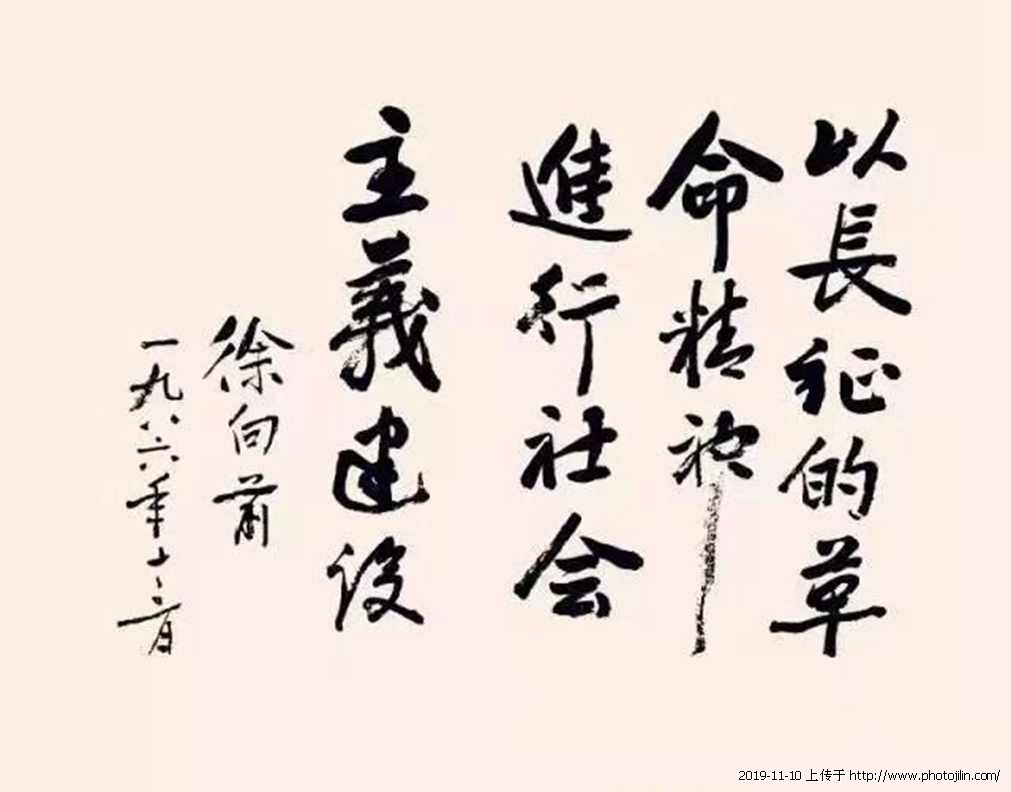 以長征的革
命精神
進行社会
主義建设
徐向前
一九八六年十二月
2019-11-10 上传于 http://www.photojilin.com/